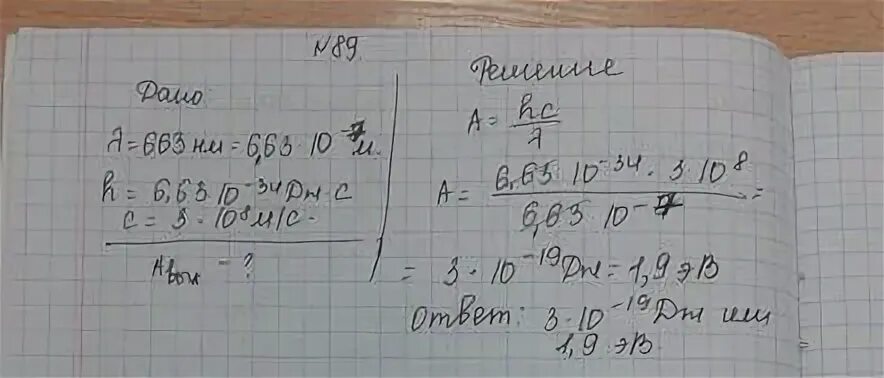 N89
Дано
λ = 663 нм = 6,63 · 10⁻⁷ м.
h = 6,63 · 10⁻³⁴ Дж · с
c = 3 · 10⁸ м/с
Aвых = ?
Решение
A = hc/λ
A = 6,63 · 10⁻³⁴ · 3 · 10⁸ / 6,63 · 10⁻⁷ =
= 3 · 10⁻¹⁹ Дж = 1,9 эВ
Ответ: 3 · 10⁻¹⁹ Дж или
1,9 эВ